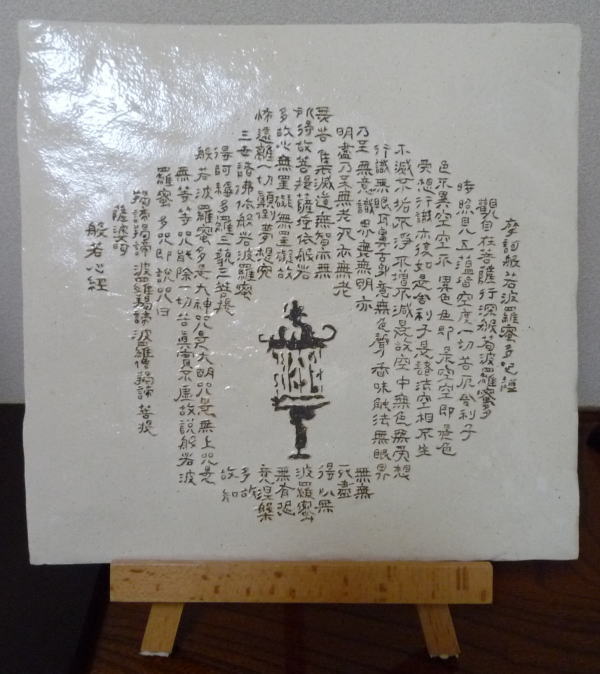 摩訶般若波羅蜜多心經
觀自在菩薩行深般若波羅蜜多
時照見五蘊皆空度一切苦厄舍利子
色不異空空不異色色即是空空即是色
受想行識亦復如是舍利子是諸法空相不生
不滅不垢不淨不增不減是故空中無色無受想
行識無眼耳鼻舌身意無色聲香味觸法無眼界
乃至無意識界無無明亦無無
明盡乃至無老死亦無老死盡
無苦集滅道無智亦無得以無
所得故菩提薩埵依般若波羅蜜
多故心無罣礙無罣礙故無有恐
怖遠離一切顛倒夢想究竟涅槃
三世諸佛依般若波羅蜜多故
得阿耨多羅三藐三菩提故知
般若波羅蜜多是大神咒是大明咒是無上咒是
無等等咒能除一切苦真實不虛故說般若波
羅蜜多咒即說咒曰
羯諦羯諦波羅羯諦波羅僧羯諦菩提
薩婆訶
般若心經